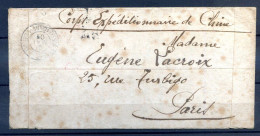 Corps Expéditionnaire de Chine
Madame
Eugène Lacroix
25, rue Turbigo
Paris